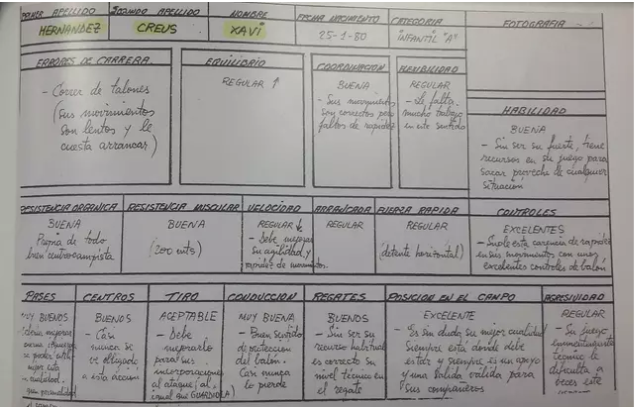 APELLIDO SEGUNDO APELLIDO NOMBRE FECHA NACIMIENTO CATEGORIA FOTOGRAFIA
HERNANDEZ CREUS XAVI 25-1-80 INFANTIL "A"
ERRORES DE CARRERA
- Correr de talones
(sus movimientos
son lentos y le
cuesta arrancar)
EQUILIBRIO
REGULAR ↑
COORDINACION
BUENA
- Sus movimientos
son correctos pero
faltos de rapidez
FLEXIBILIDAD
REGULAR
- Le falta
mucho trabajo
en este sentido
HABILIDAD
BUENA
- Sin ser su fuerte, tiene
recursos en su juego para
sacar provecho de cualquier
situación
RESISTENCIA ORGANICA
BUENA
Propia de todo
buen centrocampista
RESISTENCIA MUSCULAR
BUENA
(200 mts)
VELOCIDAD
REGULAR ↓
- Debe mejorar
su agilidad y
rapidez de movimientos.
ARRANCADA
REGULAR
FUERZA RAPIDA
REGULAR
(detente horizontal)
CONTROLES
EXCELENTES
- Suple esta carencia de rapidez
en sus movimientos con unos
excelentes controles de balón
PASES
MUY BUENOS
CENTROS
BUENOS
- Casi
nunca se
ve obligado
a esta acción
TIRO
ACEPTABLE
- Debe
mejorarlo
para sus
incorporaciones
al ataque (al
igual que GUARDIOLA)
CONDUCCION
MUY BUENA
- Buen sentido
de protección
del balón.
Casi nunca
lo pierde
REGATES
BUENOS
- Sin ser su
recurso habitual
es correcto su
nivel técnico en
el regate
POSICION EN EL CAMPO
EXCELENTE
- Es sin duda su mejor cualidad
Siempre está donde debe
estar y siempre es un apoyo
y una salida válida para
sus compañeros
AGRESIVIDAD
REGULAR
- Su juego
eminentemente
técnico le
dificulta a
veces este